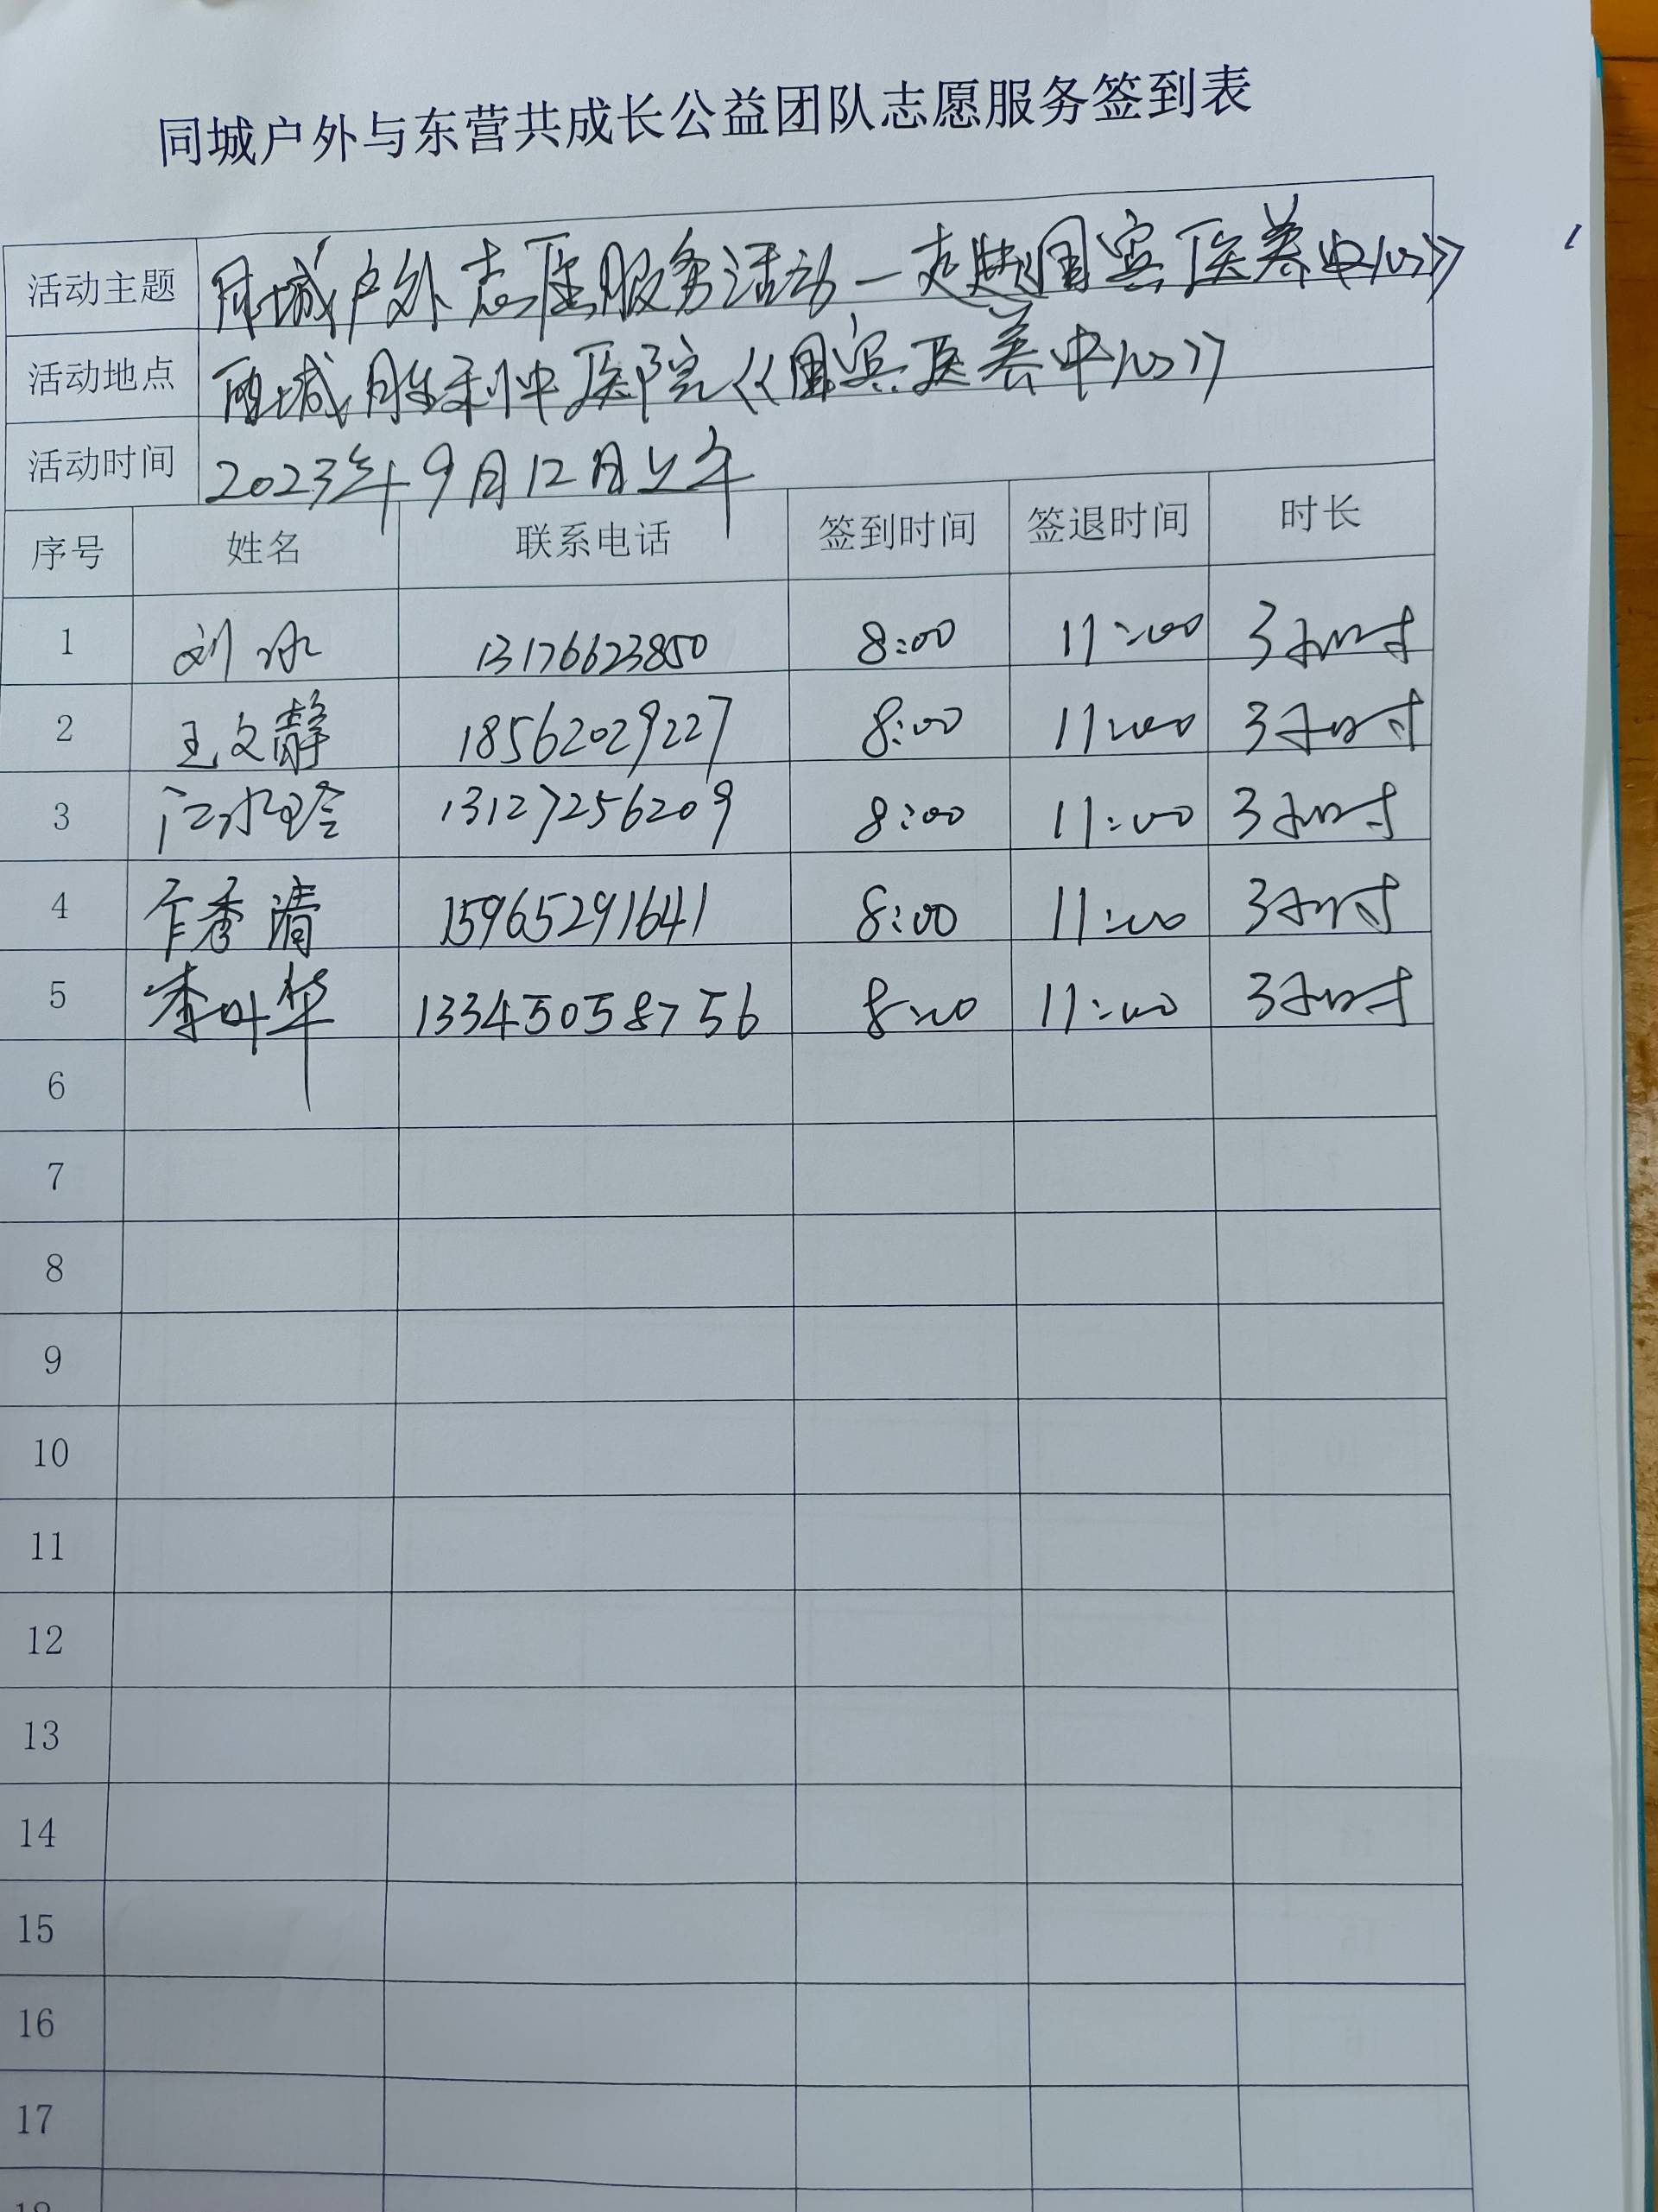 同城户外与东营共成长公益团队志愿服务签到表
活动主题 同城户外志愿服务活动—走进国宾医养中心》
活动地点 西城胜利中医院《国宾医养中心》
活动时间 2023年9月12日上午
序号 姓名 联系电话 签到时间 签退时间 时长
1 刘冰 13176623850 8:00 11:00 3小时
2 王文静 18562029227 8:00 11:00 3小时
3 江水玲 13127256209 8:00 11:00 3小时
4 秀清 15965291641 8:00 11:00 3小时
5 李叶华 13345058756 8:00 11:00 3小时
6
7
8
9
10
11
12
13
14
15
16
17
18